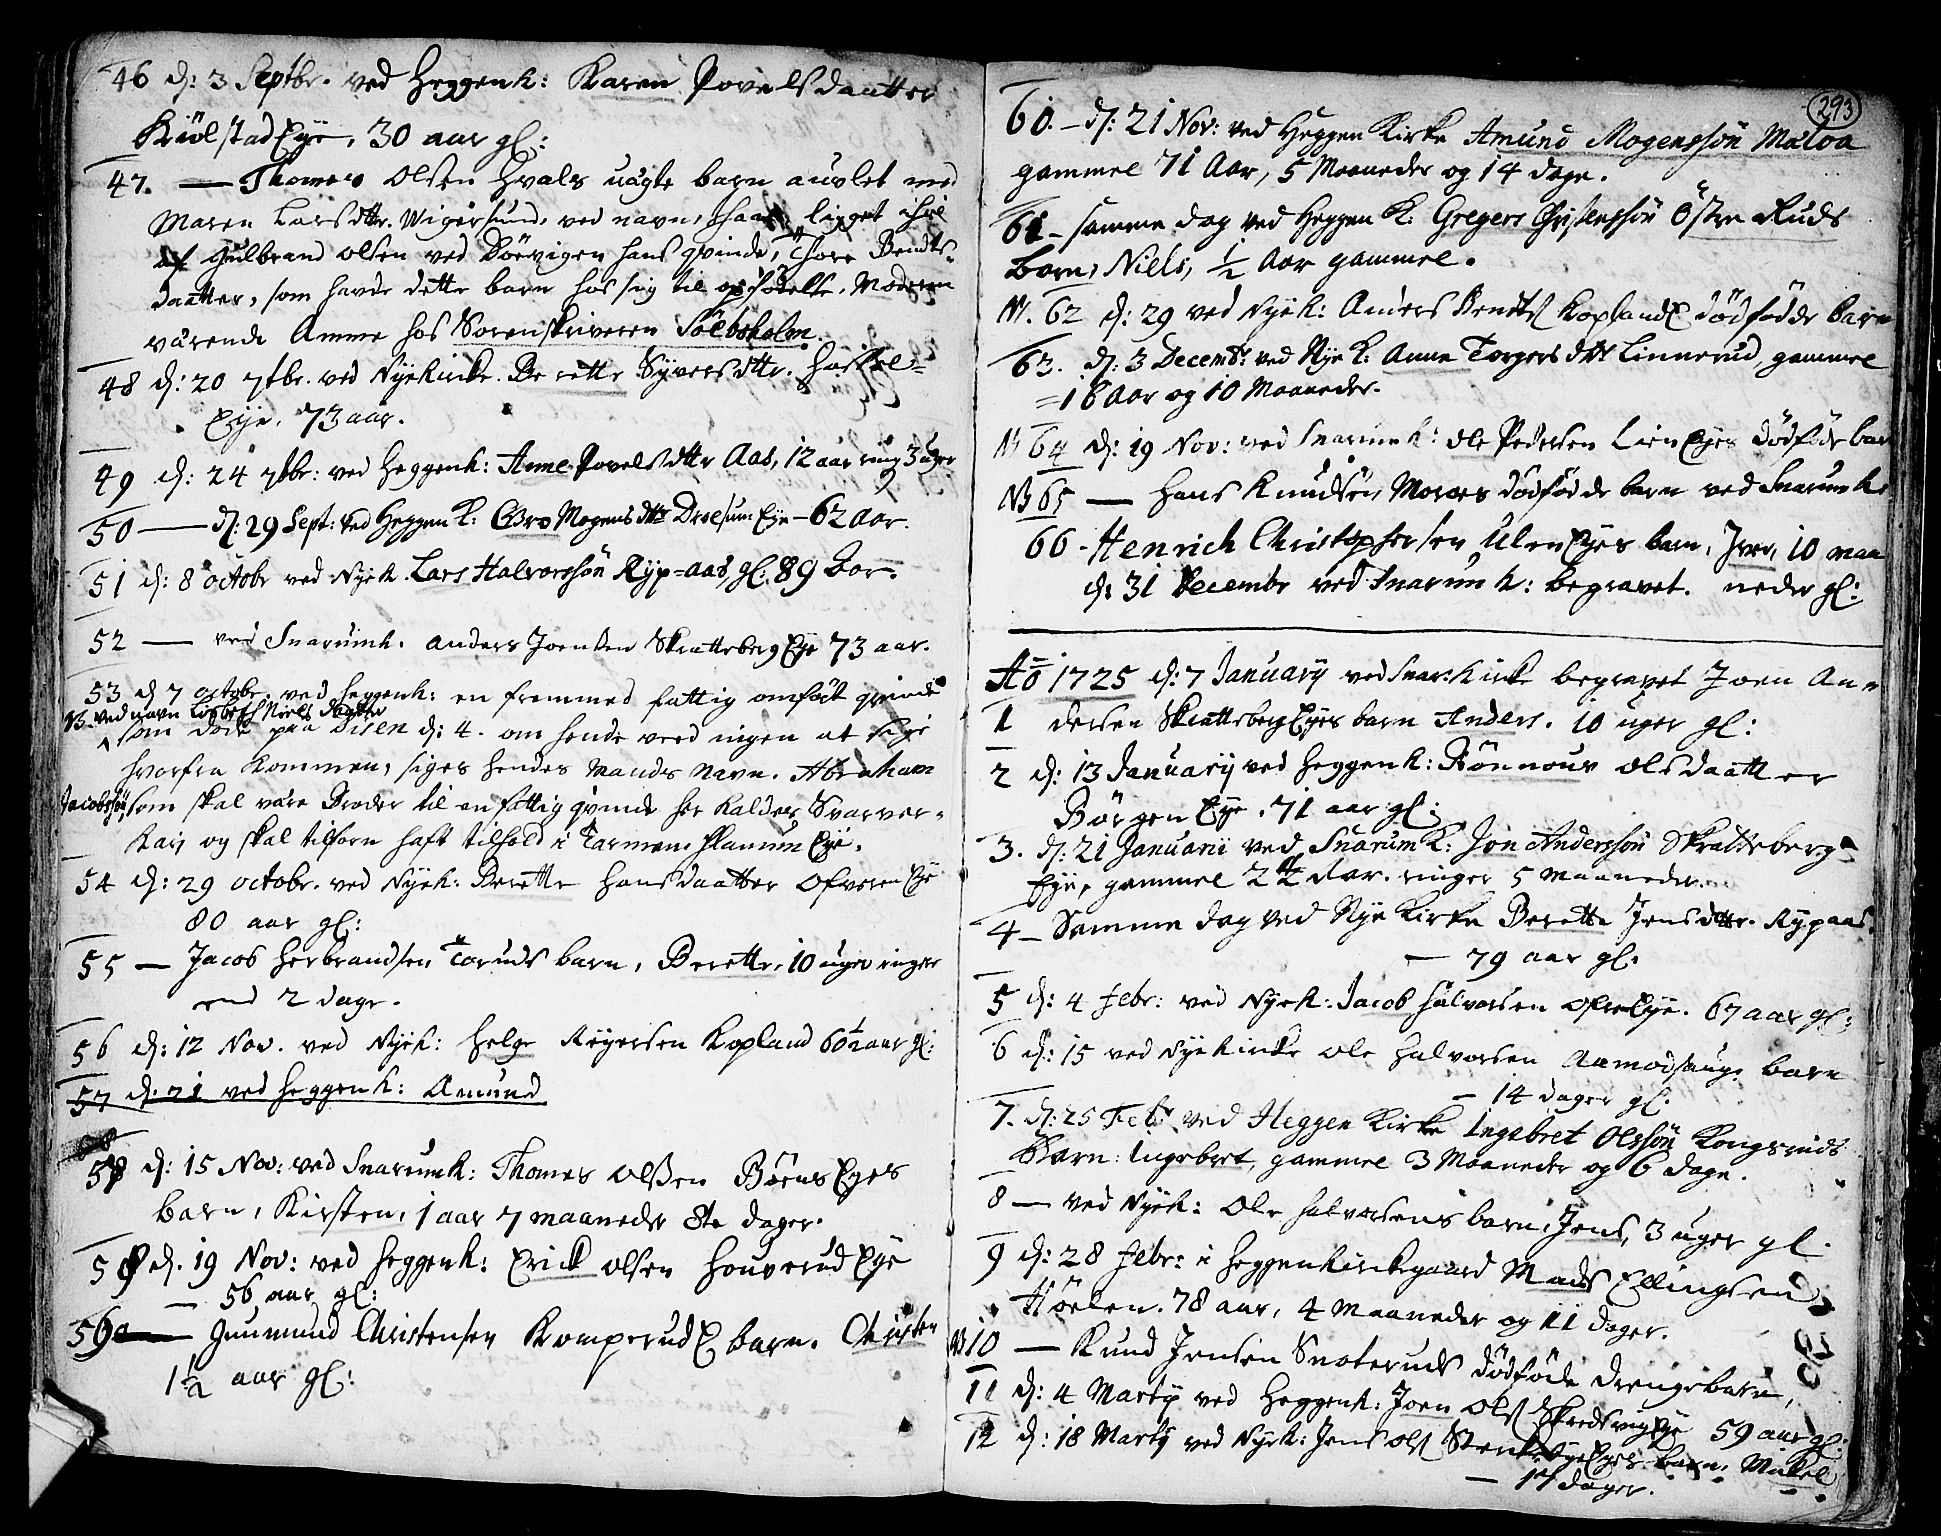 46 d: 3 Septbr. ved Heggenk: Karen Povelsdaatter
Kiölstad Eye, 30 aar gl:
47. — Thomas Olsen Hvals uägte barn auvlet med
Maren Larsdttr. Wigersund, ved navn,
af Gulbrand Olsen ved Döevigen hans qvinde, Thore Bendts-
daatter, som havde dette barn hos sig til opfödelse, Moderen
värende Amme hos Sorenskriveren Söebsholm.
48 d: 20 7tbr. ved Nyekircke. Berette Syversdttr.
Eye. 73 aar.
49 d: 24 7tbr: ved Heggenk: Anne Povelsdttr Aas, 12 aar ring 3 uger
50 — d: 29 Sept: ved Heggen K: Gro Mogensdttr Drolsum Eye – 62 Aar.
51 d: 8 octobr ved Nyek. Lars Halvorssön Ryp=aas, gl: 89 Aar.
52 — ved Snarumk. Anders Joensen Skratteberg Eye 73 aar.
53 d 7 octobr. ved Heggenk: en fremmed fattig omfödt qvinde
NB. ved navn Lisbeth Niels dagter
som döde paa Disen d: 4. om hende veed ingen at sige
hvorfra kommen, siges hendes Mands navn. Abraham
Jacobssön, som skal väre Broder til en fattig qvinde her kaldes Svarver-
Kari og skal tilforn haft tilhold i Tarmen, Flanum Eye.
54 d: 29 octobr. ved Nyek: Berette Hansdaatter Ofveren Eye
80 aar gl:
55 — Jacob Herbrandsen Toruds barn, Berette, 10 uger ringer
end 2 dage.
56 d: 12 Nov. ved Nyek: Helge Reyersen Kopland 60 1/2 aar gl:
57 d: 21 ved Heggenk: Amund
58 d: 15 Nov: ved Snarumk: Thomes Olsen Böens Eyes
barn, Kirsten, 1 aar 7 maaneder 8te dager.
59 d. 19 Nov: ved Heggenk: Erick Olsen Houverud Eye
— 56 aar gl:
59a — Guumund Christensen Komperud E barn. Christen
1 1/2 aar gl:
293
60. – d: 21 Nov: ved Heggen Kirke Amund Mogenssön Maloa
gammel 71 Aar, 5 Maaneder og 14 dage.
61 – samme dag ved Heggen K: Gregers Christenssön Östen Ruds
Barn, Niels, 1/2 Aar gammel.
N. 62 d: 29 ved Nyek: Anders Bendts Kopland E dödfödde barn
63. d: 3 Decembr ved Nye K: Anne Torgersdttr Linnerud, gammel
=16 Aar og 10 Maaneder.
N 64 d: 19 Nov: ved Snarumk: Ole Pedersen Lien Eyes dödföde barn
NB 65 — Hans Knudsen, Moroes dödfödde barn ved Snarumk:
66 - Henrich Christophersen Ulen Eyes barn, Iver, 10 maa
d: 31 Decembr ved Snarumk: begravet. neder gl:
Ao 1725 d: 7 January ved Snar: Kirke begravet Joen An=
1 dersen Skratteberg Eyes barn Anders. 10 uger gl:
2 d: 13 January ved Heggenk: Rönnouv Olsdaatter
Börgen Eye. 71 aar gl:
3. d: 21 Januarii ved Snarum K: Jon Anderssön Skratteberg=
Eye, gammel Aar. ringer 5 maaneder.
4 – Samme dag ved Nye Kirke Berette Jensdttr. Rypaas.
— 79 aar gl:
5 d: 4 febr: ved Nyek: Jacob Halvorsen Ofre Eye. 67 aar gl:
6 d: 15 ved Nyekircke Ole Halvorsen Aamodsaugs barn
– 14 dager gl:
7. d: 25 Febr ved Heggen Kirke Ingebret Olssön Kongsruds
Barn: Ingebret, gammel 3 Maaneder og 6 dage.
8 — ved Nyek: Ole Halvorsens barn, Jens, 3 uger gl.
9 d: 28 febr: i Heggenkirkegaard Mads Ellingsen
Höelen. 78 aar, 4 Maaneder og 11 dager.
NB 10 — Knud Jensen Snoteruds dödföde drengebarn,
11 d: 4 Marty ved Heggenk: Joen Ols Skredsvig Eye 59 aar gl:
12 d: 18 Marty ved Nyek: Jens Ols Eyes barn, Mickel
— 14 dager.